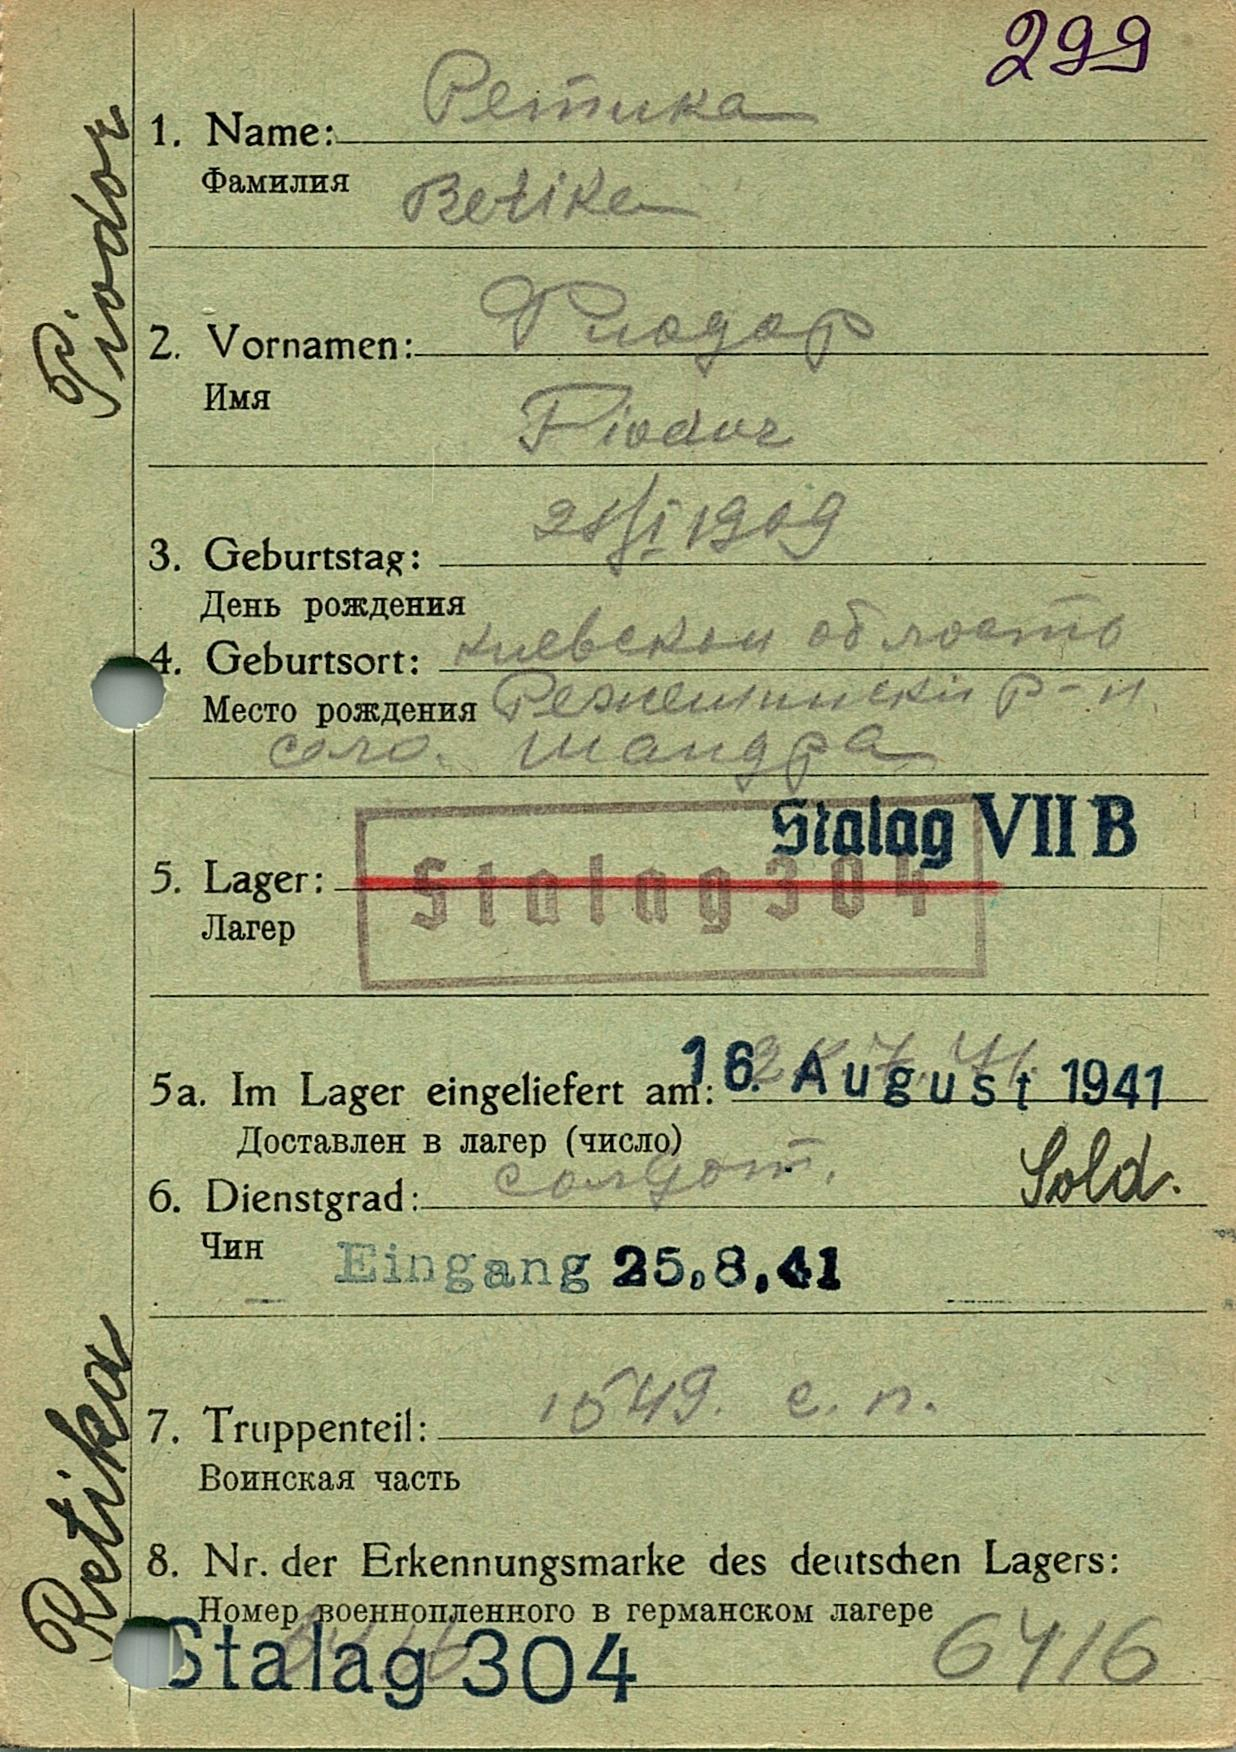 299
Ретика
1. Name:
Фамилия
Retika
Фиодор
2. Vornamen:
Имя
Fiodor
28/I 1909
3. Geburtstag:
День рождения
4. Geburtsort: киевской область
Место рождения Ржещински р-н
село. шандра
Stalag VII B
5. Lager: Stalag 304
Лагер
5a. Im Lager eingeliefert am: 16. August 1941
Доставлен в лагер (число)
6. Dienstgrad: солдат. Sold.
Чин
Eingang 25.8.41
1549. с. п.
7. Truppenteil:
Воинская часть
8. Nr. der Erkennungsmarke des deutschen Lagers:
Номер военнопленного в германском лагере
Stalag 304 6416
Retika
Piodor